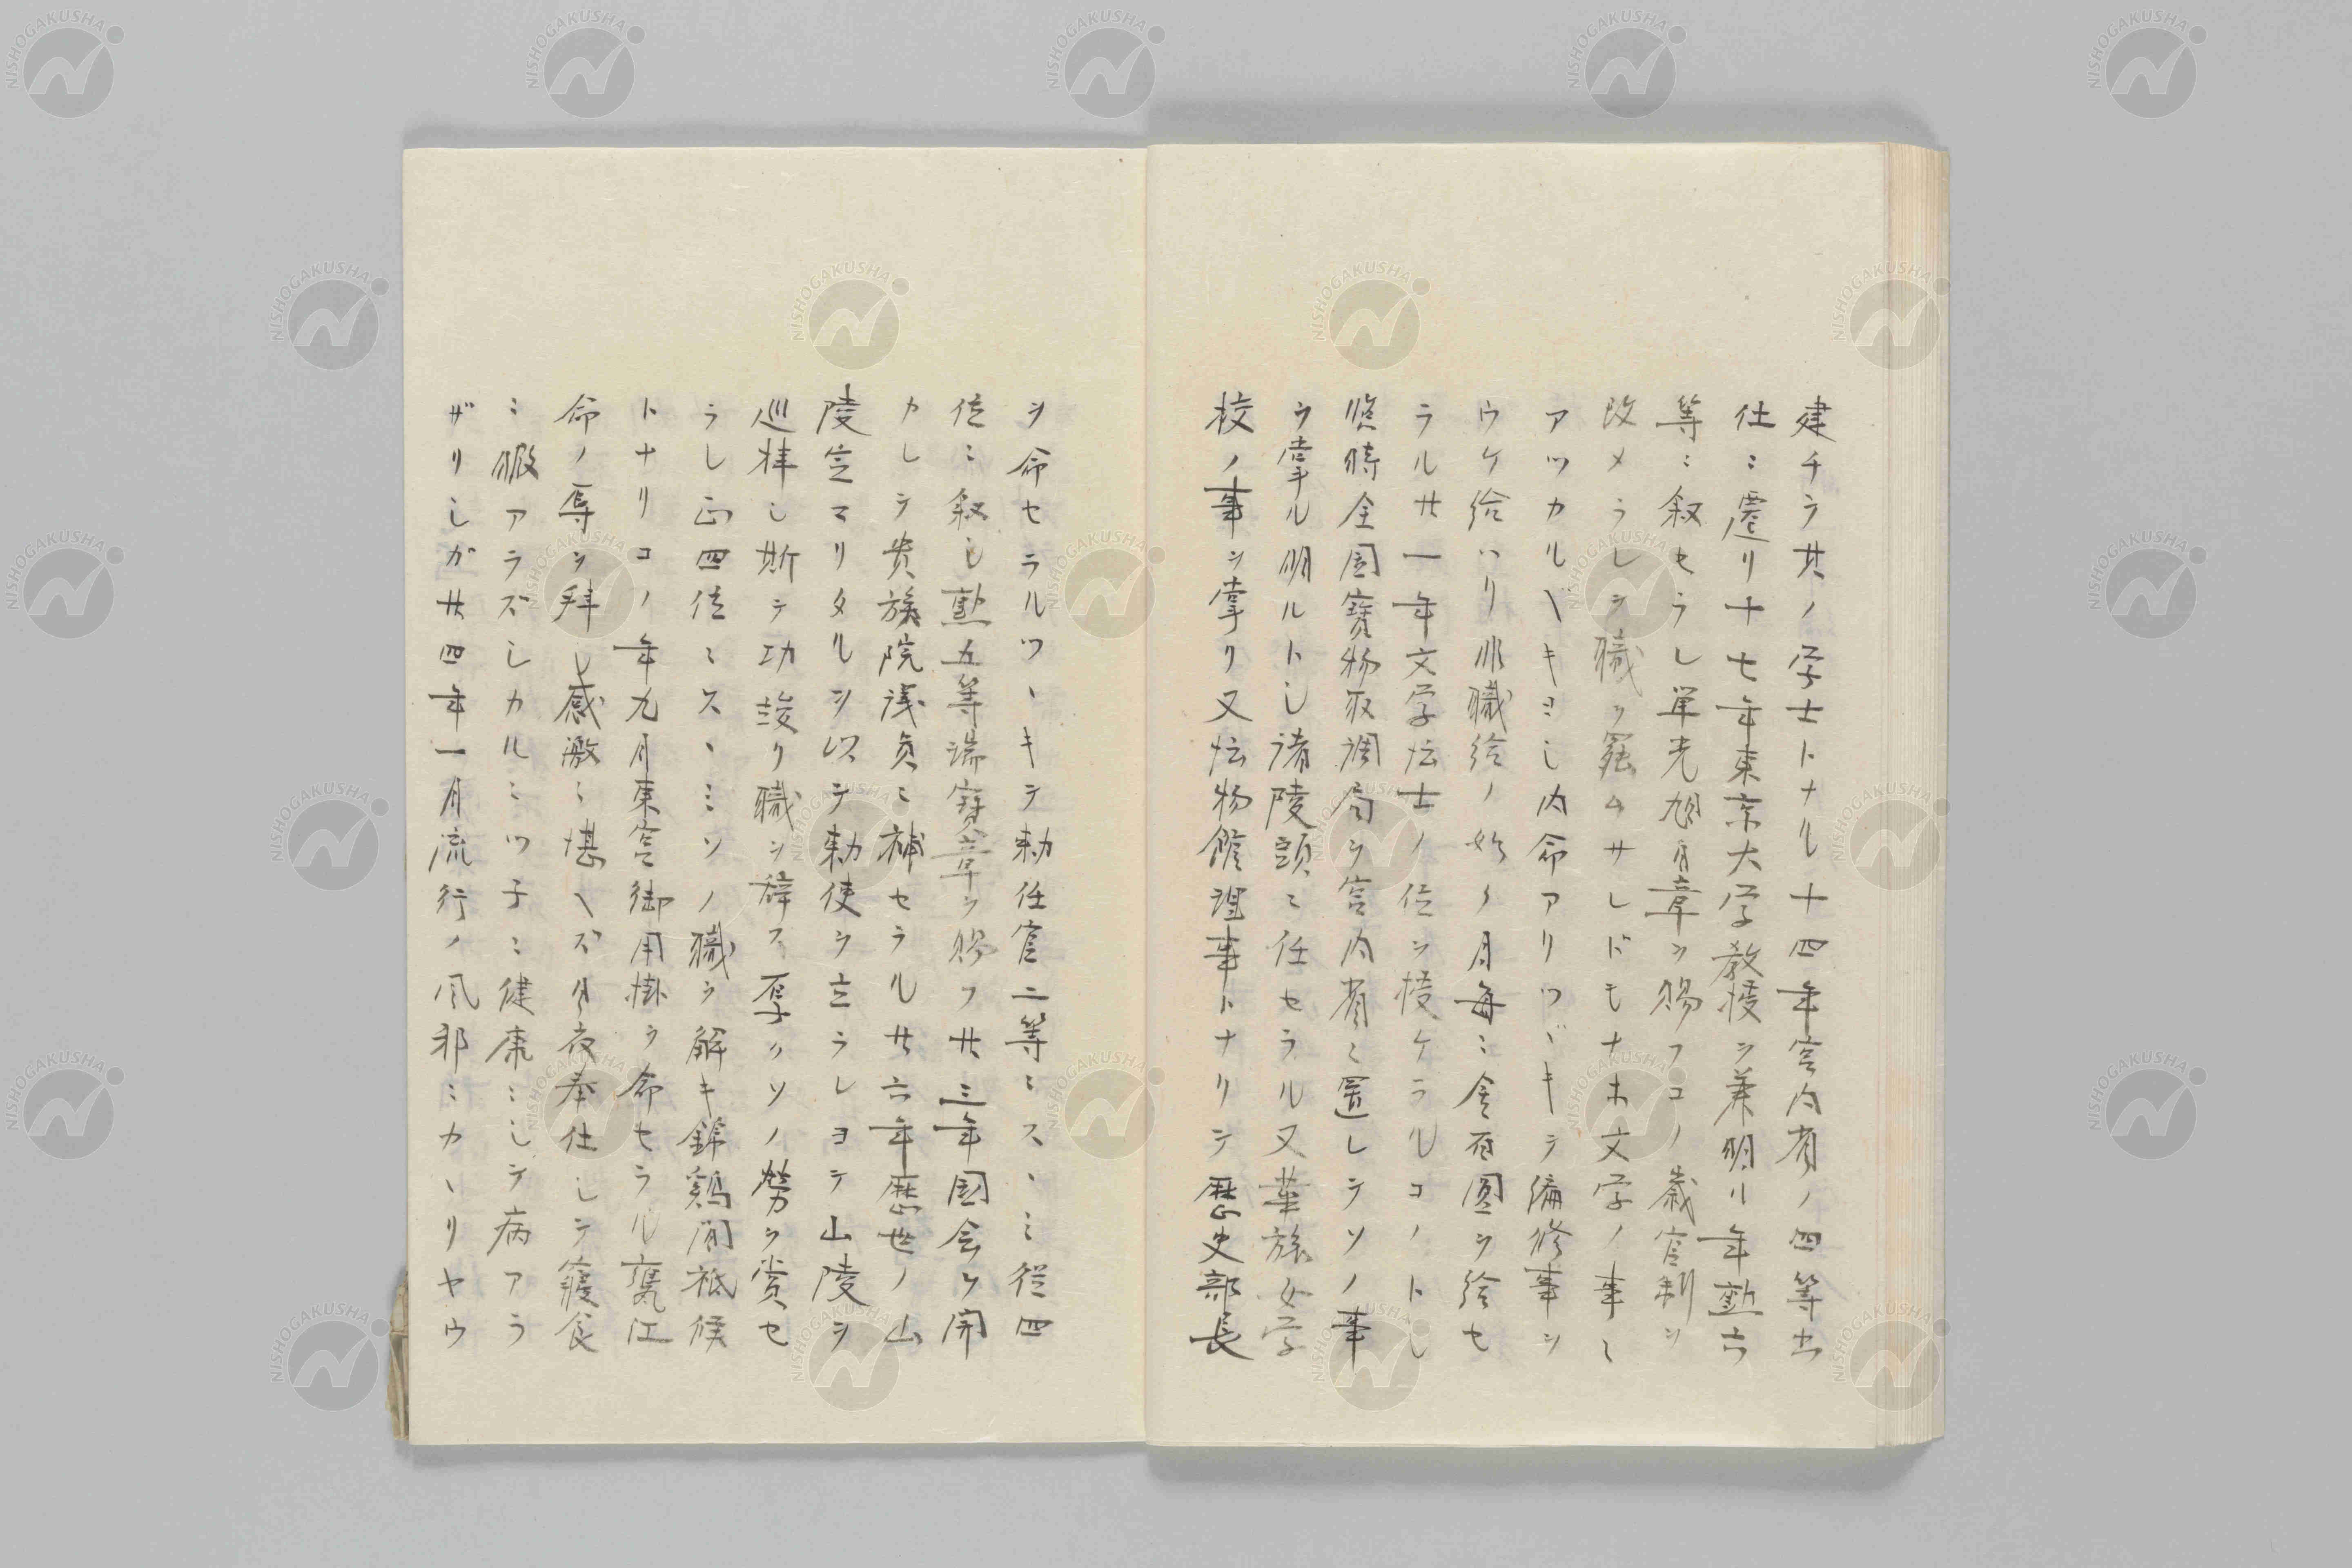 建チラ其ノ学士トナル十四年宮内省ノ四等出
仕ニ遷リ十七年東京大学教授ヲ兼明ル年勲六
等ニ叙セラレ単光旭日章ヲ賜フコノ歳官制ヲ
改メラレラ職ヲ罷ムサレドモナホ文学ノ事ニ
アツカルヘキヨシ内命アリツヾキテ編修事ヲ
ウケ給ハリ非職給ノ外ノ月毎ニ金百圓ヲ給セ
ラル廿一年文学博士ノ位ヲ授ケラルコノトし
臨時全国寳物取調局ヲ宮内省ニ置レテソノ事
ヲ掌ル明ルトし諸陵頭ニ任セラル又華族女学
校ノ事ヲ掌リ又博物館理事トナリテ歴史部長
ヲ命セラルツヽキテ勅任官二等ニスヽミ従四
位ニ叙し勲五等瑞寳章ヲ賜フ廿三年国会ヲ開
カレテ貴族院議員ニ補セラル廿六年歴世ノ山
陵定マリタルヲ以テ勅使ヲ立ラレヨテ山陵ヲ
巡拝し斯テ功竣リ職ヲ辞ス辱クソノ労ヲ賞セ
ラレ正四位ニスヽミソノ職ヲ解キ錦鶏間祗候
トナリコノ年九月東宮御用掛ヲ命セラル甕江
命ノ辱ヲ拜し感激ニ堪ヘズ日夜奉仕シテ寝食
ニ暇アラズシカルニツ子ニ健康ニシテ病アラ
ザリシガ廿四年一月流行ノ風邪ニカヽリヤウ
NISHOGAKUSHA